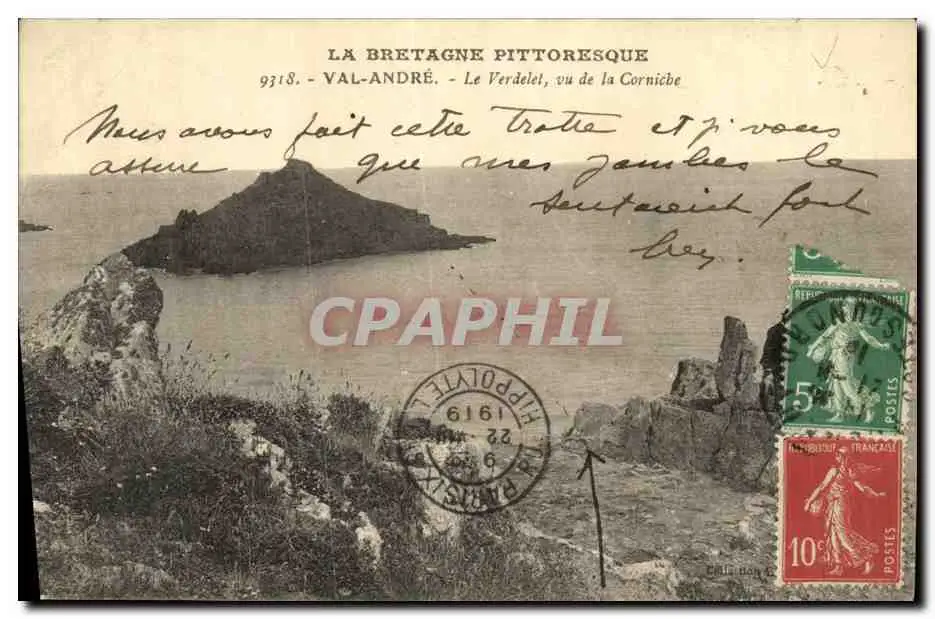 LA BRETAGNE PITTORESQUE
9318. - VAL-ANDRÉ. - Le Verdelet, vu de la Corniche
Nous avons fait cette trotte et j'vous
assure que mes jambes le
sentaient fort
hey.
CPAPHIL
RÉPUBLIQUE FRANÇAISE
5c
POSTES
RÉPUBLIQUE FRANÇAISE
10c
POSTES
PARIS IX
R. HIPPOLYTE L
22
1919
Collection